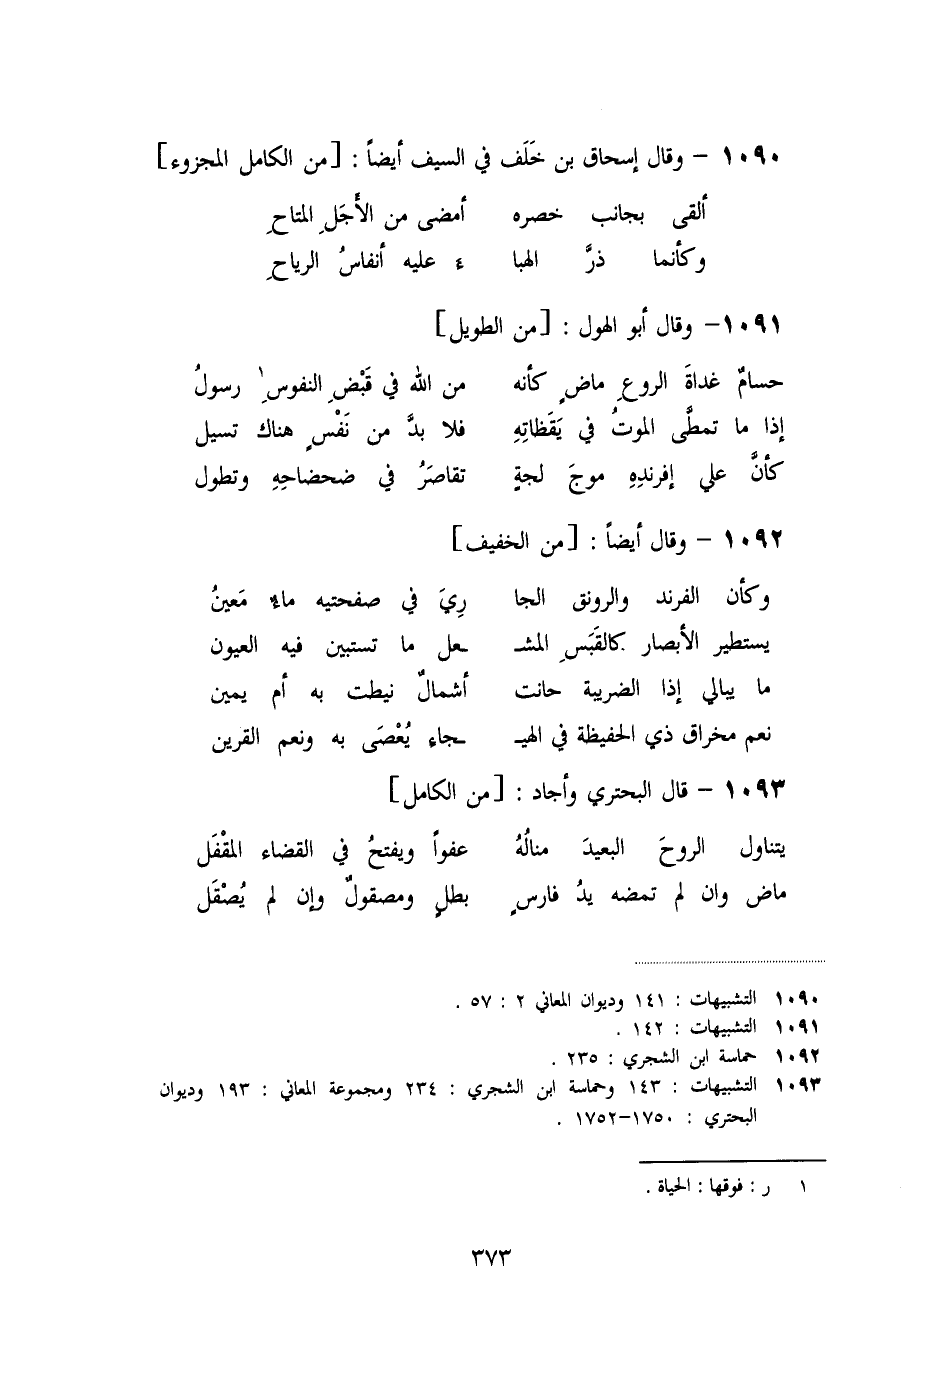 ١٠٩٠ – وقال إسحاق بن خَلَف في السيف أيضاً : [من الكامل المجزوء]
ألقى بجانب خصره أمضى من الأَجَلِ المتاحِ
وكأنما ذرَّ الهبا ء عليه أنفاسُ الرياحِ
١٠٩١– وقال أبو الهول : [من الطويل]
حسامٌ غداةَ الروعِ ماضٍ كأنه من الله في قَبْضِ النفوسِ١ رسولُ
إذا ما تمطَّى الموتُ في يَقَظاتِهِ فلا بدَّ من نَفْسٍ هناك تسيل
كأنَّ علي إفرندِهِ موجَ لجةٍ تقاصَرُ في ضحضاحِهِ وتطول
١٠٩٢ – وقال أيضاً : [من الخفيف]
وكأن الفرند والرونق الجا رِيَ في صفحتيه ماءٌ مَعينُ
يستطير الأبصار كالقَبَسِ المشـ ـعل ما تستبين فيه العيون
ما يبالي إذا الضريبة حانت أشمالٌ نيطت به أم يمين
نعم مخراق ذي الحفيظة في الهيـ ـجاءِ يُعْصَى به ونعم القرين
١٠٩٣ – قال البحتري وأجاد : [من الكامل]
يتناول الروحَ البعيدَ منالُهُ عفواً ويفتحُ في القضاء المقْفَل
ماض وان لم تمضه يدُ فارسٍ بطلٍ ومصقولٌ وإن لم يُصْقَل
١٠٩٠ التشبيهات : ١٤١ وديوان المعاني ٢ : ٥٧ .
١٠٩١ التشبيهات : ١٤٢ .
١٠٩٢ حماسة ابن الشجري : ٢٣٥ .
١٠٩٣ التشبيهات : ١٤٣ وحماسة ابن الشجري : ٢٣٤ ومجموعة المعاني : ١٩٣ وديوان
البحتري : ١٧٥٠–١٧٥٢ .
١ ر : فوقها : الحياة .
٣٧٣